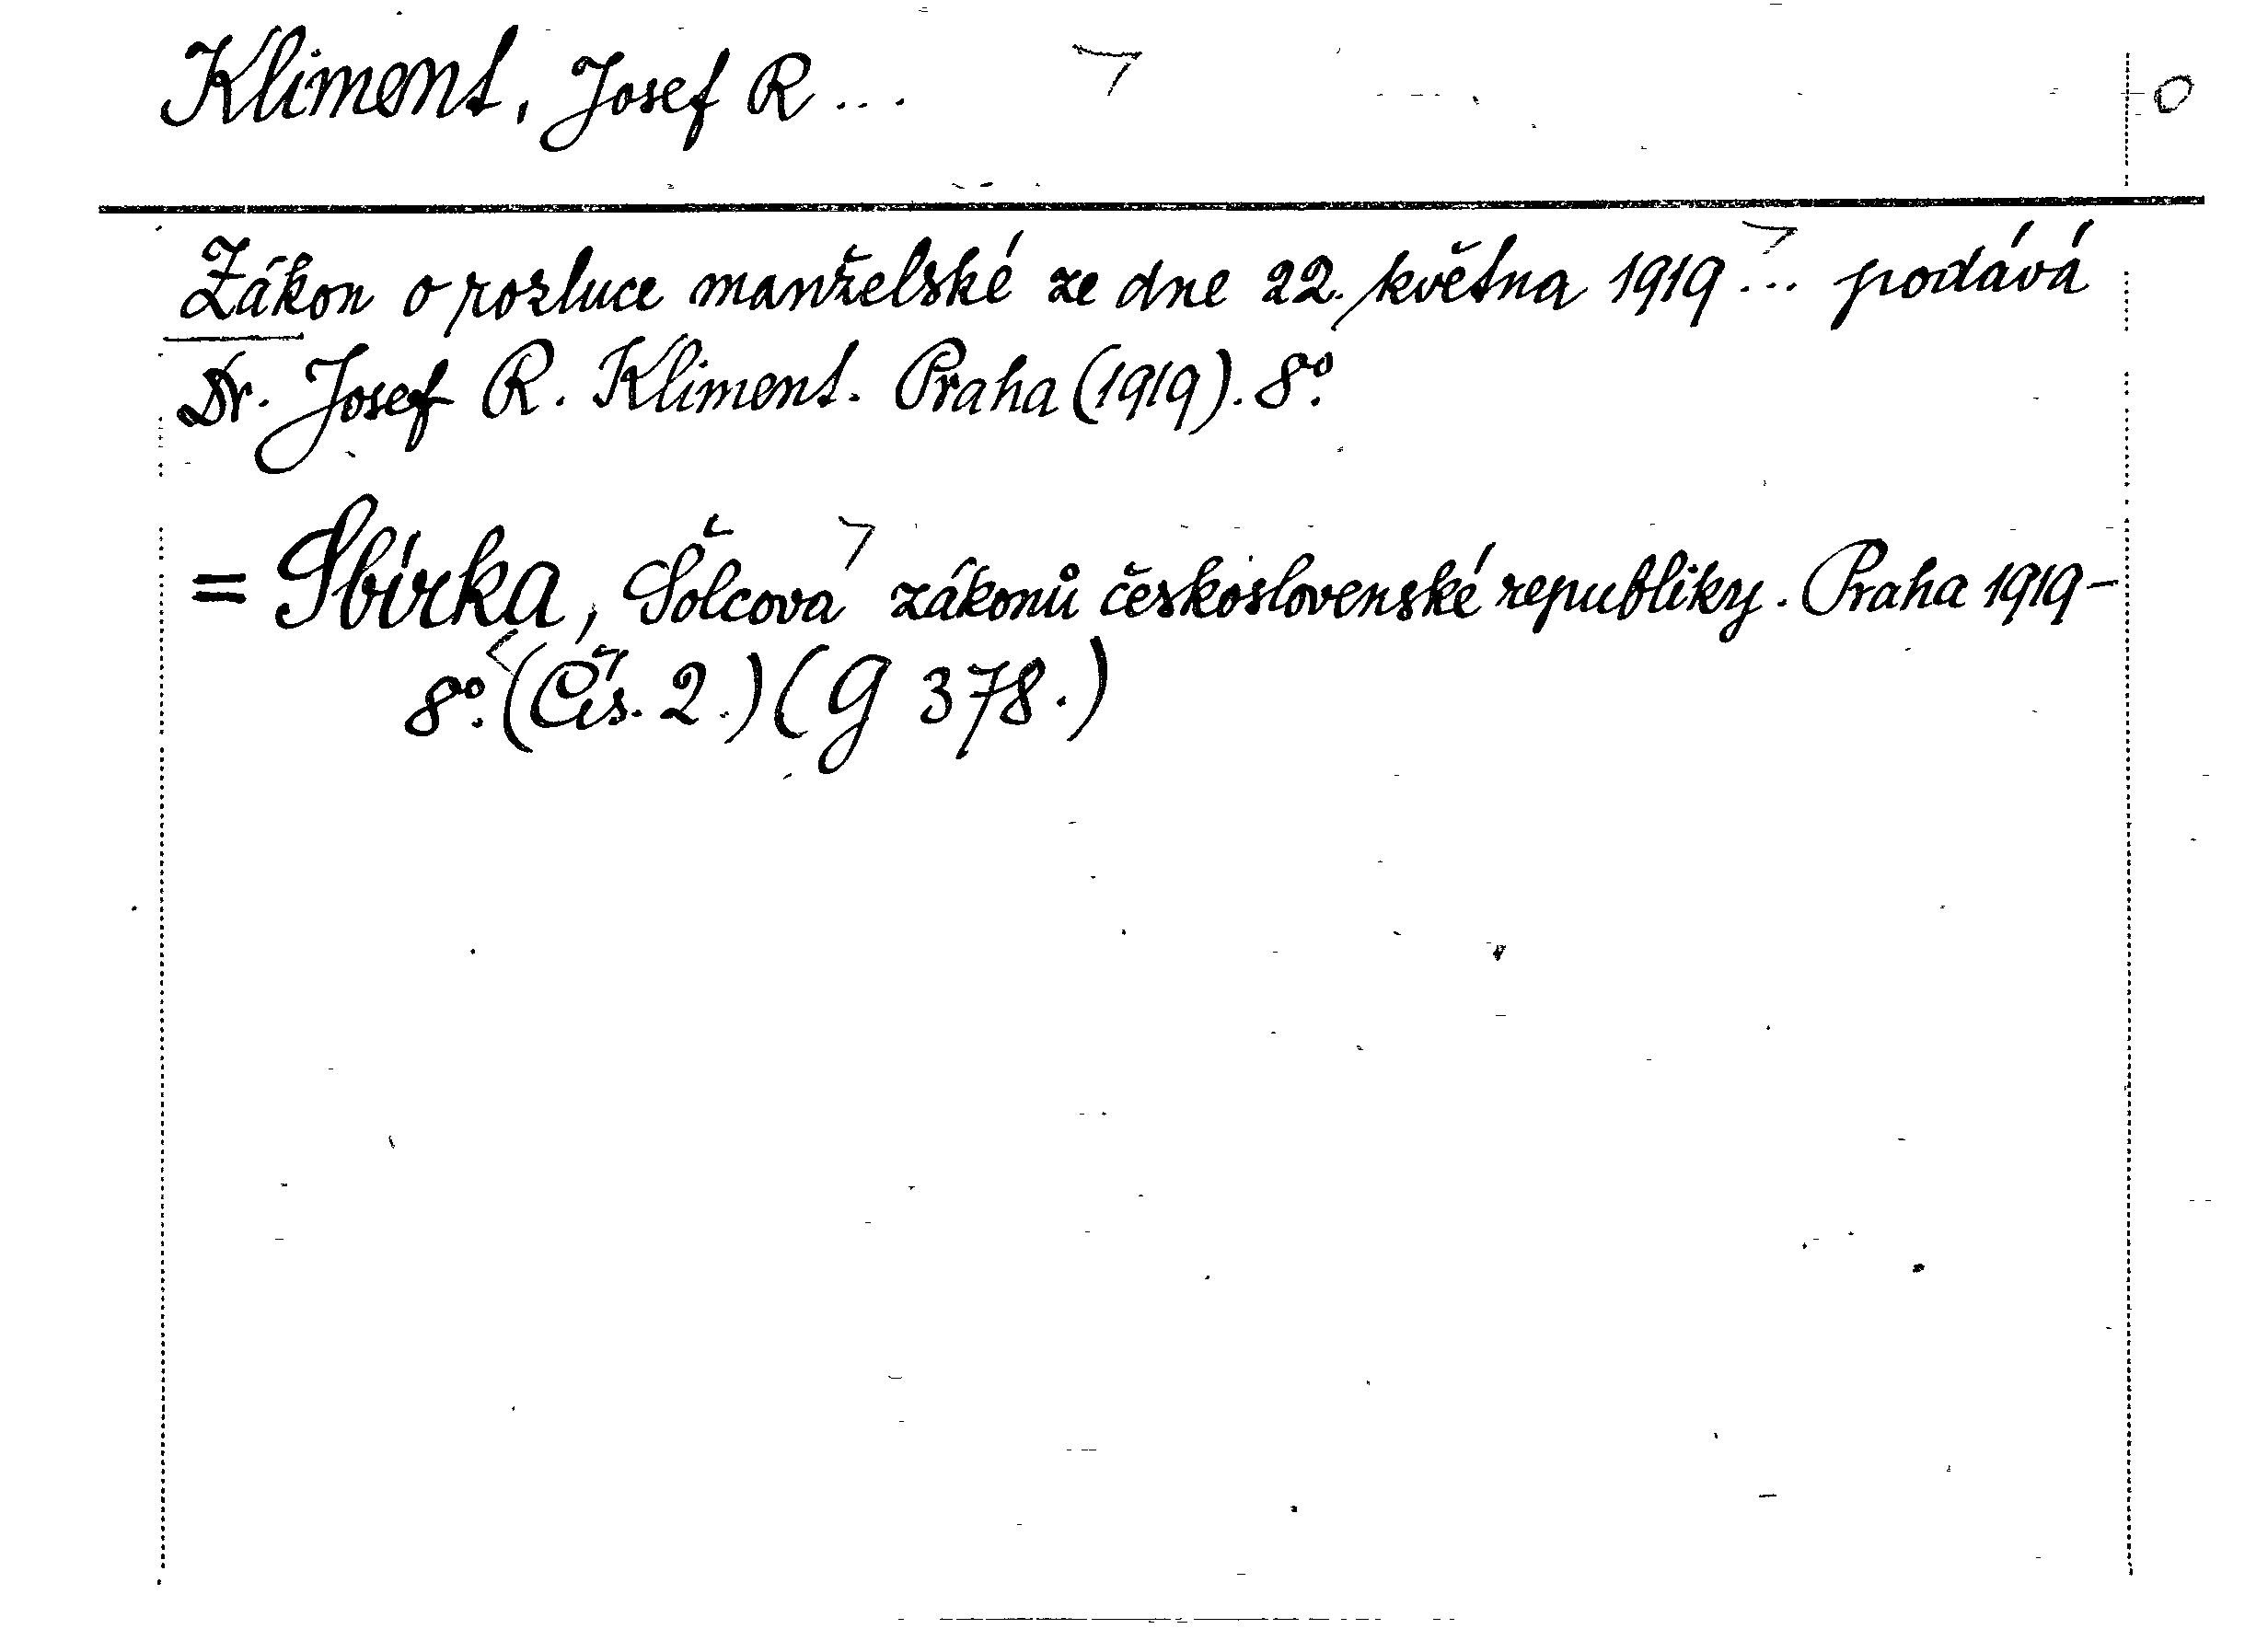 Kliment, Josef R... ㄱ O
Zákon o rozluce manželské ze dne 22. května 1919 ... podává
Dr. Josef R. Kliment. Praha (1919). 8º.
= Sbírka, Šolcova zákonů československé republiky. Praha 1919-
8º. (Čís. 2.) (G 378.)